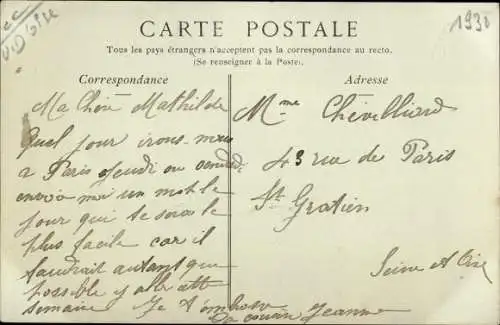 CARTE POSTALE
Tous les pays étrangers n'acceptent pas la correspondance au recto.
(Se renseigner à la Poste).
Correspondance
Adresse
1930
V D'Oise
Ma Chère Mathilde
Quel jour irons-nous
a Paris Jeudi ou vendredi
envoie moi un mot le
jour qui te sera le
plus facile car il
faudrait autant que
possible y aller cette
semaine Je t'embrasse
ta cousine Jeanne
Mme Chevilliard
43 rue de Paris
St Gratien
Seine et Oise